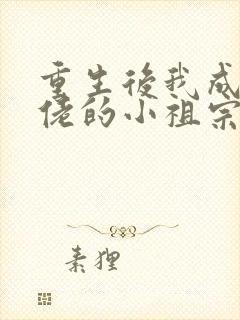 重生後我成
佬的小祖宗
素狸